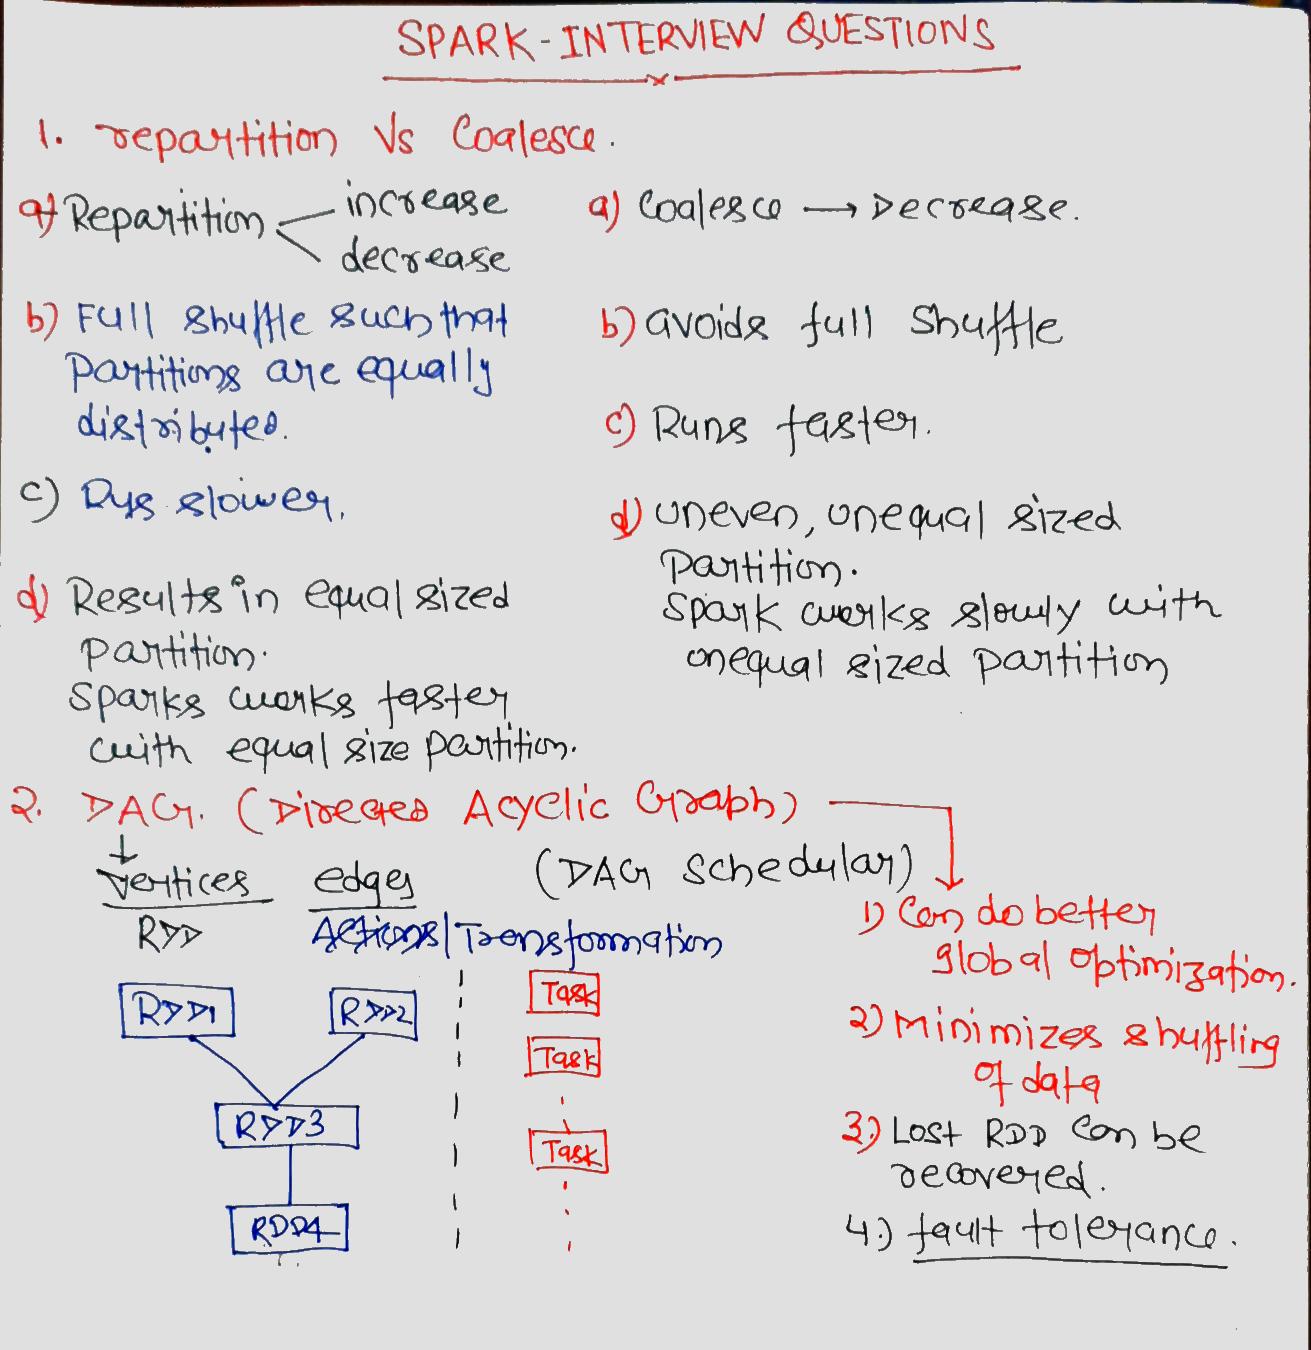 SPARK-INTERVIEW QUESTIONS
1. repartition Vs Coalesce.
a) Repartition
increase
decrease
b) Full shuffle such that
Partitions are equally
distributed.
c) Runs slower.
d) Results in equal sized
partition.
Sparks works faster
with equal size partition.
a) Coalesce → Decrease.
b) avoids full Shuffle
c) Runs faster.
d) uneven, unequal sized
Partition.
Spark works slowly with
unequal sized partition
2. DAG. (Directed Acyclic Graph)
(DAG Schedular)
vertices edges
RDD Actions/Transformation
RDD1 RDD2
RDD3
RDD4
Task
Task
Task
1) Can do better
global optimization.
2) Minimizes shuffling
of data
3.) Lost RDD Can be
recovered.
4.) fault tolerance.